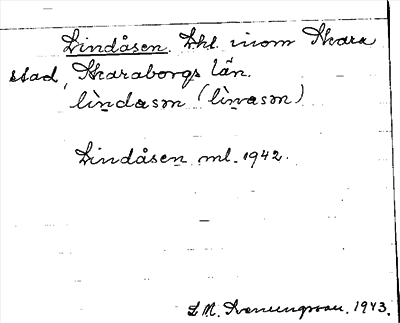 Lindåsen. Lht. inom Skara
stad, Skaraborgs län.
lìndasən (lìnasən)
Lindåsen ml. 1942.
L. M. Svenungsson. 1943.